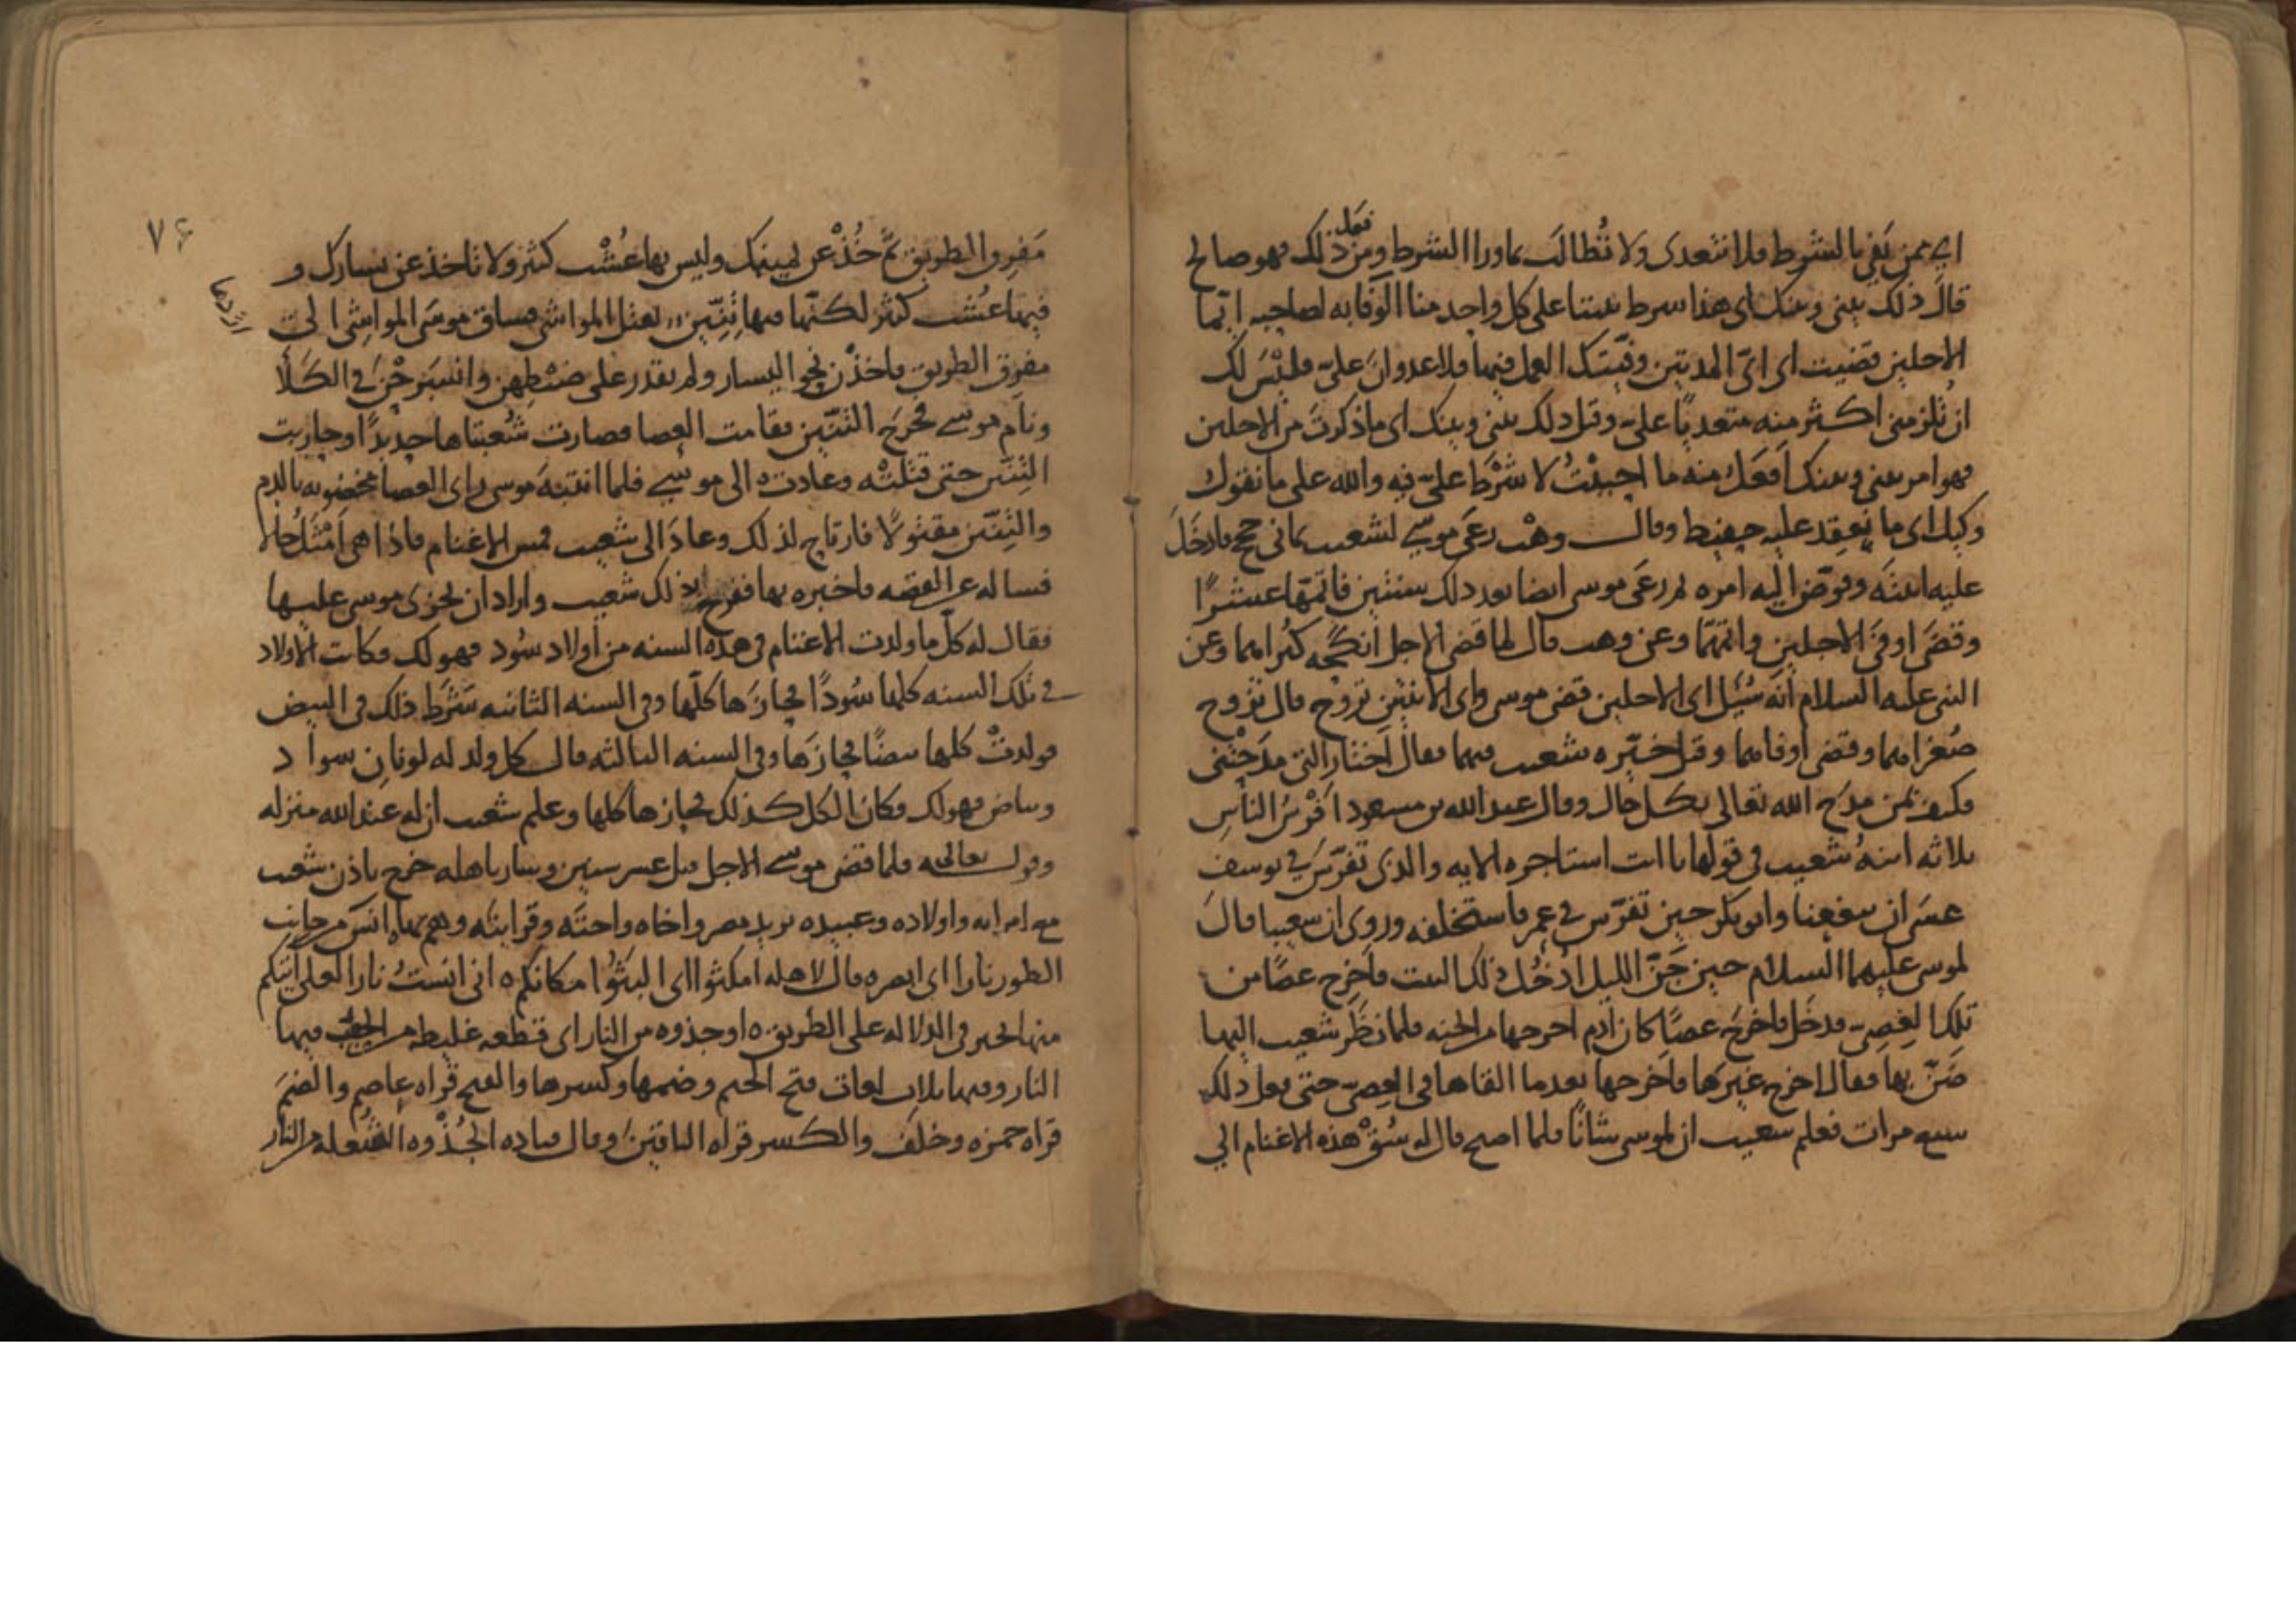 اي ممن يفي بالشرط فلا نتعدى ولا نُطالب بما ورا الشرط ومن فعل ذلك فهو صالح
قال ذلك بيني وبينك اى هذا شرط بيننا على كل واحد منا الوفا به لصاحبه ايّما
الاجلين قضيت اى اىّ المدتين وفّيتك العمل فيها فلا عدوان علىّ فليس لك
ان تُلزمنى اكثر منه متعديًا علىّ وقيل ذلك بينى وبينك اى ما ذكرت من الاجلين
فهو امر بينى وبينك افعل منه ما احببتُ لا شرط علىّ فيه والله على ما نقول
وكيل اى ما ينعقد عليه حفيظ وقال وهْب رعى موسى لشعيب ثمانى حجج فادخل
عليه ابنته وفوّض اليه امره ثم رعى موسى ايضا بعد ذلك سنتين فاتمّها عشرًا
وقضى اوفى الاجلين واتمّهما وعن وهب قال لما قضى الاجل انكحه كبراهما وعن
النبى عليه السلام انه سُئِل اى الاجلين قضى موسى واى الابنتين تزوج قال تزوج
صُغراهما وقضى اوفاهما وقيل خيّره شعيب فيهما فقال اختار التى مدحتنى
فكيف بمن مدح الله تعالى بكل حال وقال عبد الله بن مسعود افْرسُ الناس
ثلاثه ابنهُ شعيب فى قولها يا ابت استاجره الايه والذى تفرّس فى يوسف
عسى ان ينفعنا وابو بكر حين تفرّس فى عمر فاستخلفه وروى ان شعيبا قال
لموسى عليهما السلام حين جَنّ الليل ادْخُل ذلك البيت فاخرج عصًا من
تلك العِصِىّ فدخل فاخرج عصًا كان ادم اخرجها من الجنه فلما نظر شعيب اليها
ضَنّ بها فقال اخرج غيرها فاخرجها بعدما القاها فى العِصىّ حتى فعل ذلك
سبع مرات فعلم شعيب ان لموسى شانًا فلما اصبح قال له سُقْ هذه الاغنام الي
٧٤
مَفرِق الطريق ثمّ خُذْ عن يمينك وليس بها عُشْب كثير ولا تاخذ عن يسارك و
فيها عُشب كثير لكنّها فيها تِنّين يقتل المواشى فساق موسى المواشى الى
مفرق الطريق فاخذن نحو اليسار ولم يقدر على ضبطهن وانسَرحْنَ فى الكَلأ
ونام موسى فخرج التنّين فقامت العصا فصارت شُعبتاها حديدًا وحاربت
التِنّين حتى قتلتْه وعادت الى موسى فلما انتبه موسى راى العصا مخضوبه بالدم
والتِنّين مقتولًا فارتاح لذلك وعاد الى شعيب فمس الاغنام فاذا هى اَمْثَلُ حالا
فساله عن القصه فاخبره بها ففرح بذلك شعيب واراد ان يجزى موسى عليها
فقال له كلّ ما ولدت الاغنام فى هذه السنه من اولاد سُود فهو لك فكانت الاولاد
فى تلك السنه كلها سُودًا فحازَها كلّها وفى السنه الثانيه شَرَط ذلك فى البيض
فولدتْ كلها بيضًا فحازَها وفى السنه الثالثه قال كل ولد له لونان سواد
وبياض فهو لك فكان الكل كذلك فحازها كلها وعلم شعيب ان له عند الله منزله
وقوله تعالى فلما قضى موسى الاجل قيل عشر سنين وسار باهله خرج باذن شعيب
مع امراته واولاده وعبيده يريد مصر واخاه واخته وقرابته وهم بها انس من جانب
الطور نارا اى ابصره قال لاهله امكثوا اى البَثُوا مكانكم انى انستُ نارا لعلى اتيكم
منها بخبر فى الدلاله على الطريق او جذوه من النار اى قطعه غليظه من الحطب فيها
النار وفيها ثلاث لغات فتح الجيم وضمها وكسرها والفتح قراه عاصم والضمّ
قراه حمزه وخلف والكسر قراه الباقين وقال قتاده الجُذْوه الشُعله من النار